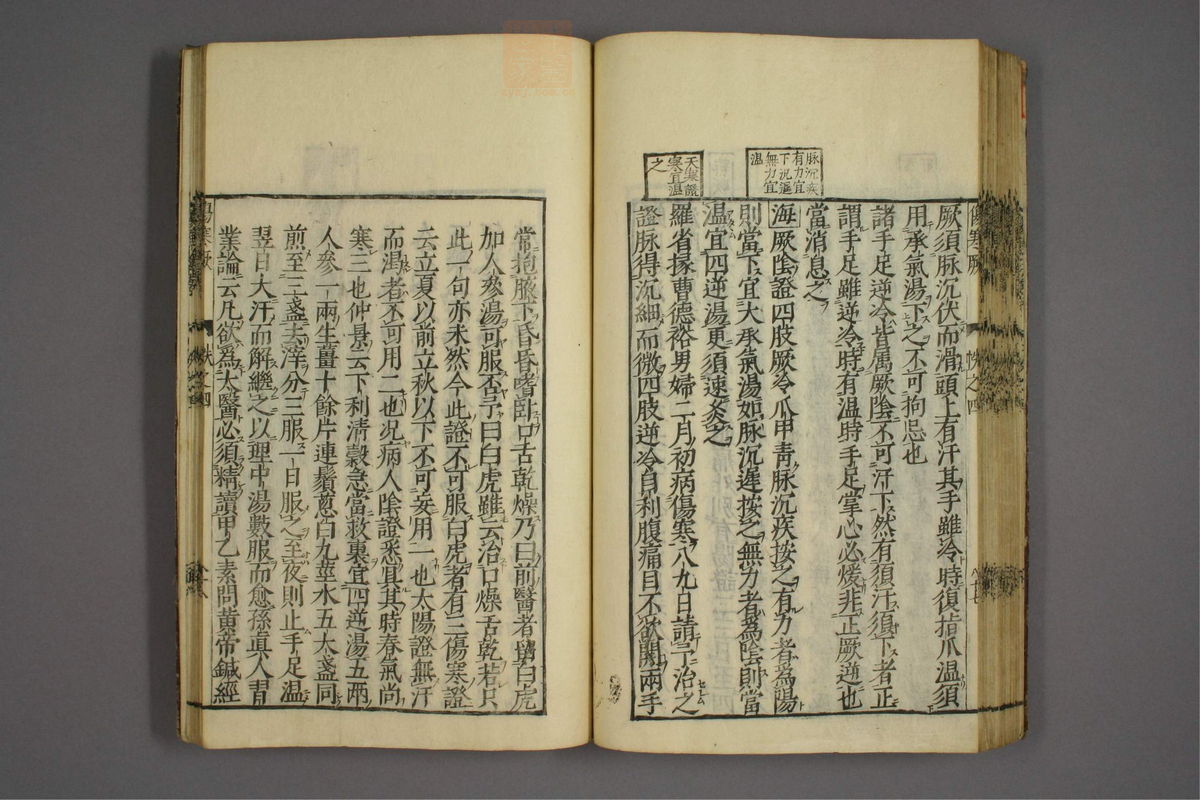 厥須脉沉伏而滑頭上有汗其手雖冷時復指爪温須
用承氣湯下之不可拘忌也
諸手足逆冷皆属厥陰不可汗下然有須汗須下者正
謂手足雖逆冷時有温時手足掌心必煖非正厥逆也
當消息之
海厥陰證四肢厥冷爪甲青脉沉疾按之有力者爲陽
則當下宜大承氣湯如脉沉遲按之無力者為陰則當
温宜四逆湯更須速灸之
羅省掾曹德裕男婦二月初病傷寒八九日請予治之
證脉得沉細而微四肢逆冷自利腹痛目不欲開兩手
脉沉疾
有力宜
下沉遲
無力宜
温
天寒證
寒宜温
之
常抱腋下昏昏嗜卧口舌乾燥乃曰前醫者留白虎
加人參湯可服否予曰白虎雖云治口燥舌乾若只
此一句亦未然今此證不可服白虎者有三傷寒證
云立夏以前立秋以下不可妄用一也太陽證無汗
而渴者不可用二也况病人陰證悉具其時春氣尚
寒三也仲景云下利清穀急當救裏宜四逆湯五兩
人參一兩生薑十餘片連鬚葱白九莖水五大盞同
煎至三盞去滓分三服一日服之至夜則止手足温
翌日大汗而解繼之以理中湯數服而愈孫眞人習
業論云凡欲爲大醫必須精讀甲乙素問黄帝鍼經